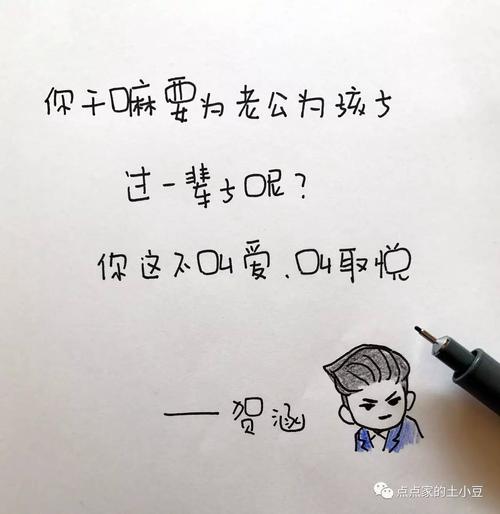 你干嘛要为老公为孩子
过一辈子呢？
你这不叫爱、叫取悦
——贺涵
点点家的土小豆